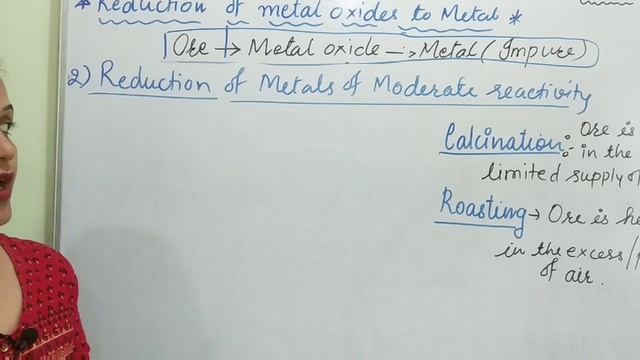 * Reduction of metal oxides to Metal *
Ore → Metal oxide → Metal (Impure)
2) Reduction of Metals of Moderate reactivity
Calcination: Ore is
in the
limited supply of
Roasting → Ore is he
in the excess/
of air.